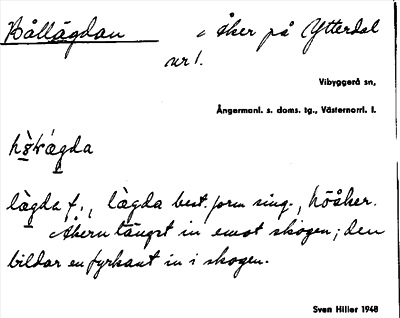 Bållägdan    åker på Ytterdal
nr 1.
Vibyggerå sn,
Ångermanl. s. doms. tg., Västernorrl. l.
lägda f., lägda best. form sing., höåker.
Åkern längst in emot skogen; den
bildar en fyrkant in i skogen.
Sven Hiller 1948